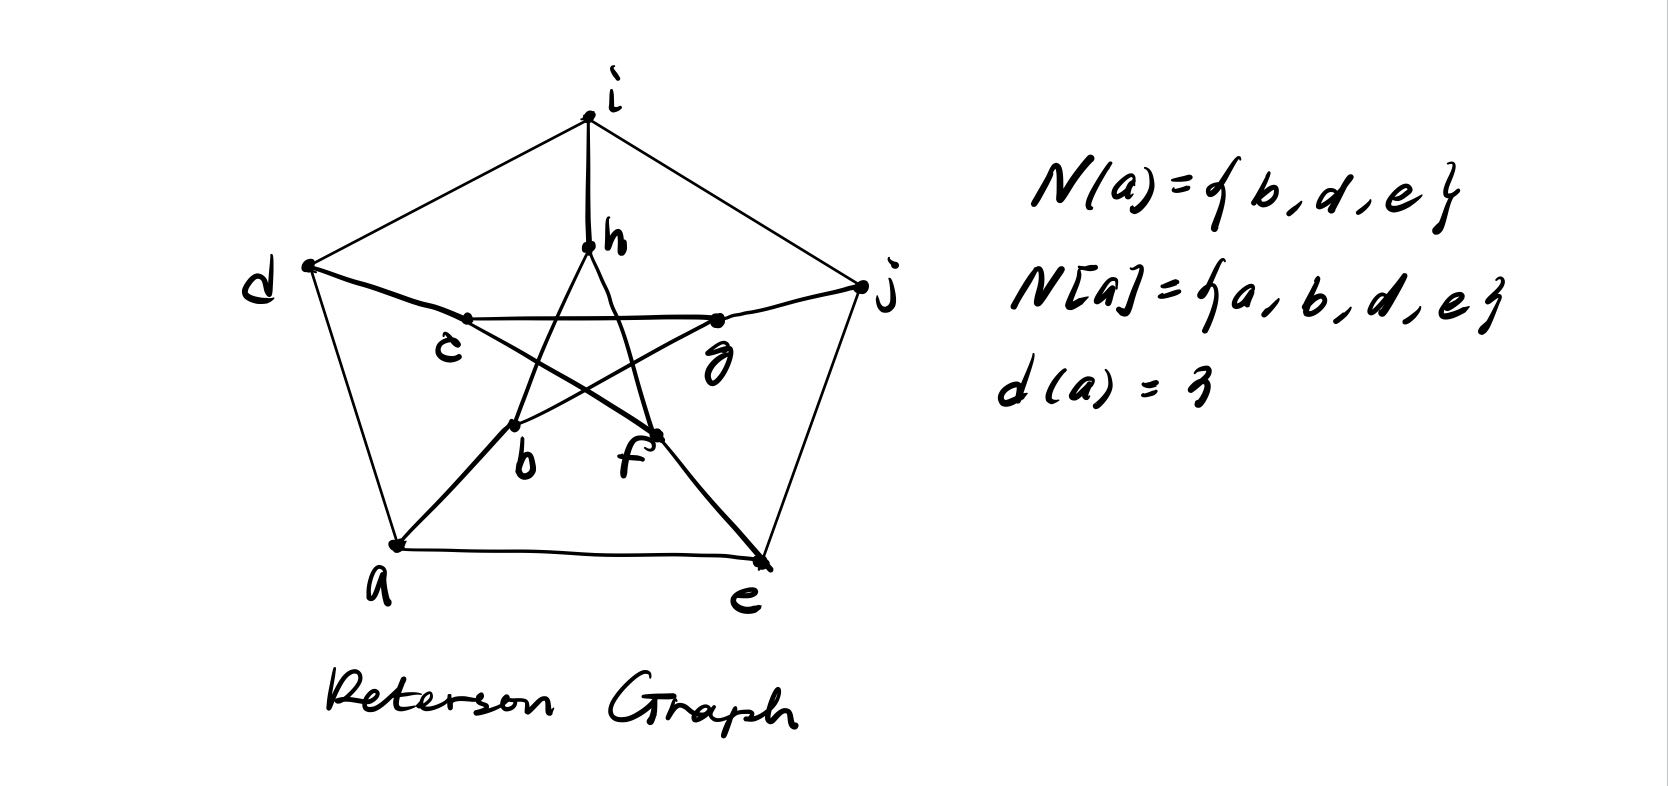 i
h
d
j
c
g
b
f
a
e
Peterson Graph
N(a) = { b, d, e }
N[a] = { a, b, d, e }
d(a) = 3